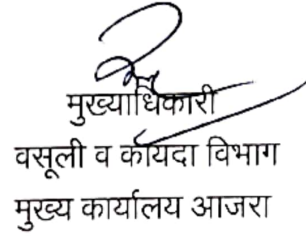 मुख्याधिकारी
वसूली व कायदा विभाग
मुख्य कार्यालय आजरा